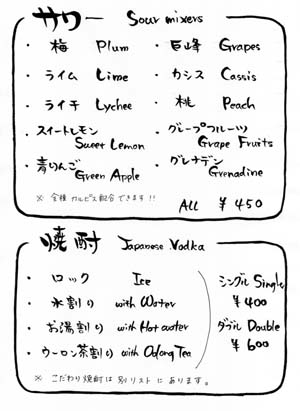 サワー Sour mixers
・ 梅 Plum
・ 巨峰 Grapes
・ ライム Lime
・ カシス Cassis
・ ライチ Lychee
・ 桃 Peach
・ スイートレモン
Sweet Lemon
・ グレープフルーツ
Grape Fruits
・ 青りんご
Green Apple
・ グレナデン
Grenadine
※ 全種 カルピス配合できます!!
ALL ¥450
焼酎 Japanese Vodka
・ ロック Ice
・ 水割り with Water
・ お湯割り with Hot water
・ ウーロン茶割り with Oolong Tea
シングル Single
¥400
ダブル Double
¥600
※ こだわり焼酎は別リストにあります。